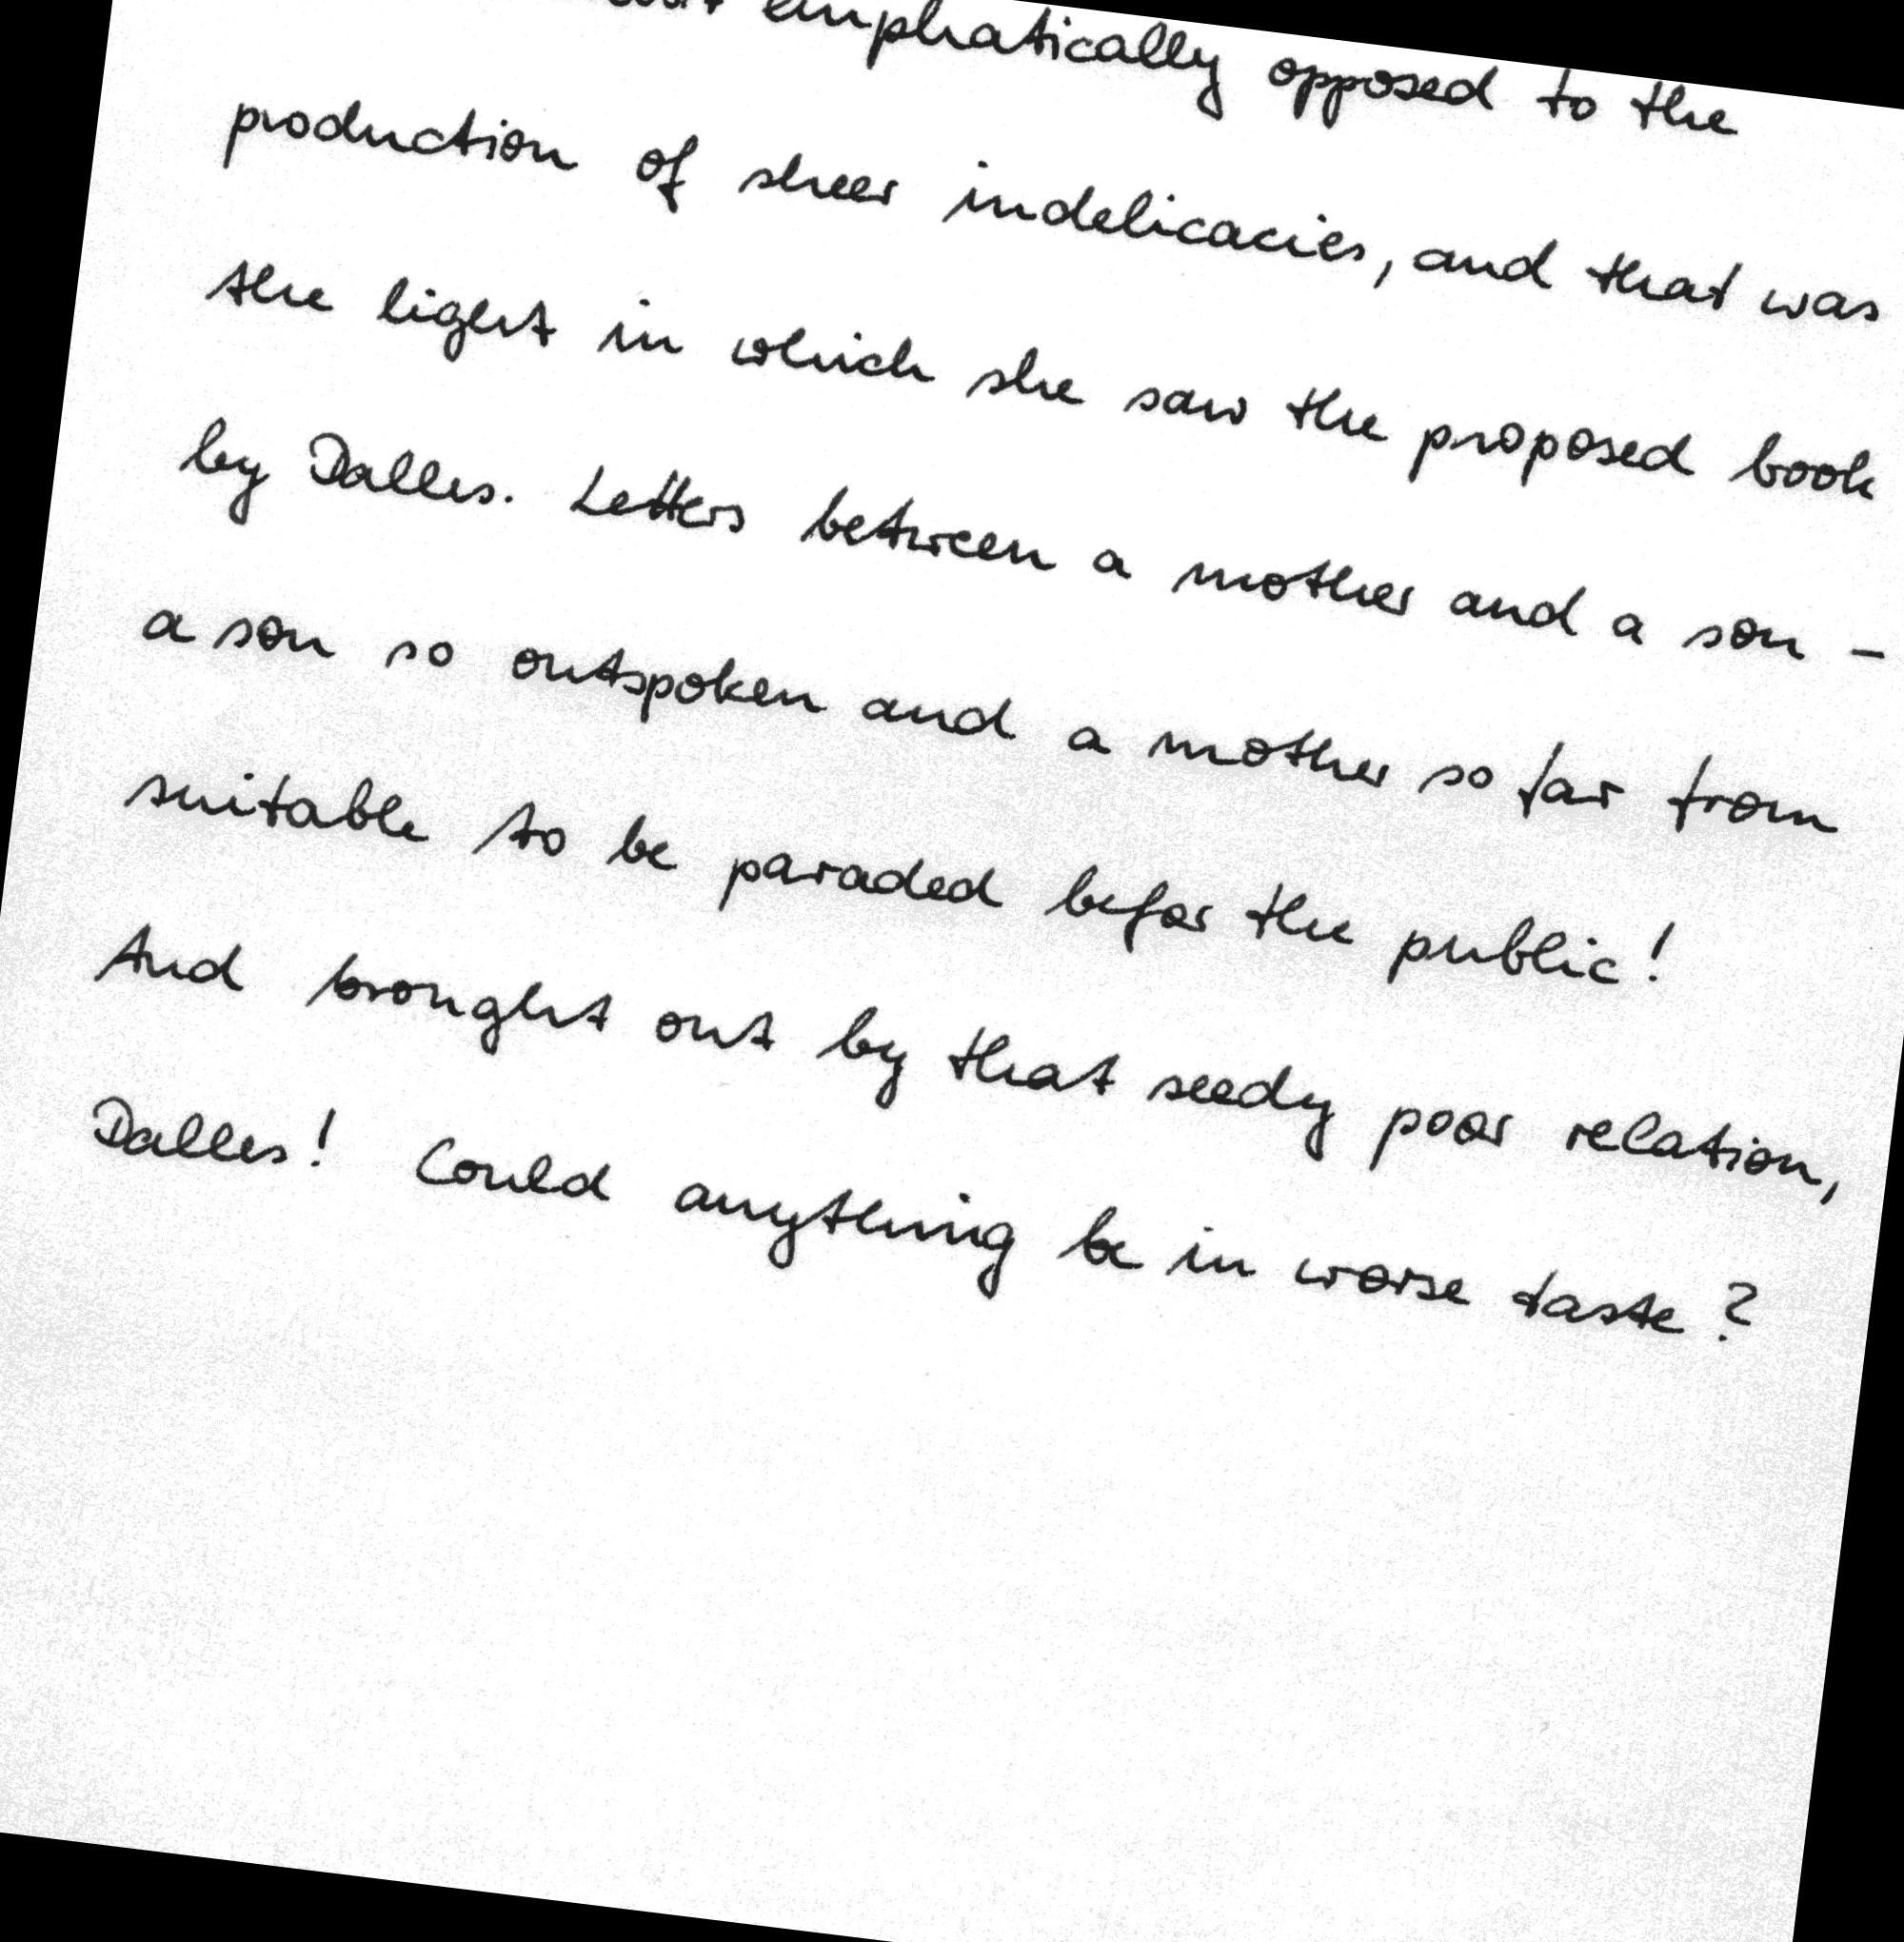 emphatically opposed to the
production of sheer indelicacies, and that was
the light in which she saw the proposed book
by Dalles. Letters between a mother and a son -
a son so outspoken and a mother so far from
suitable to be paraded befor the public!
And brought out by that seedy poor relation,
Dalles! Could anything be in worse taste?